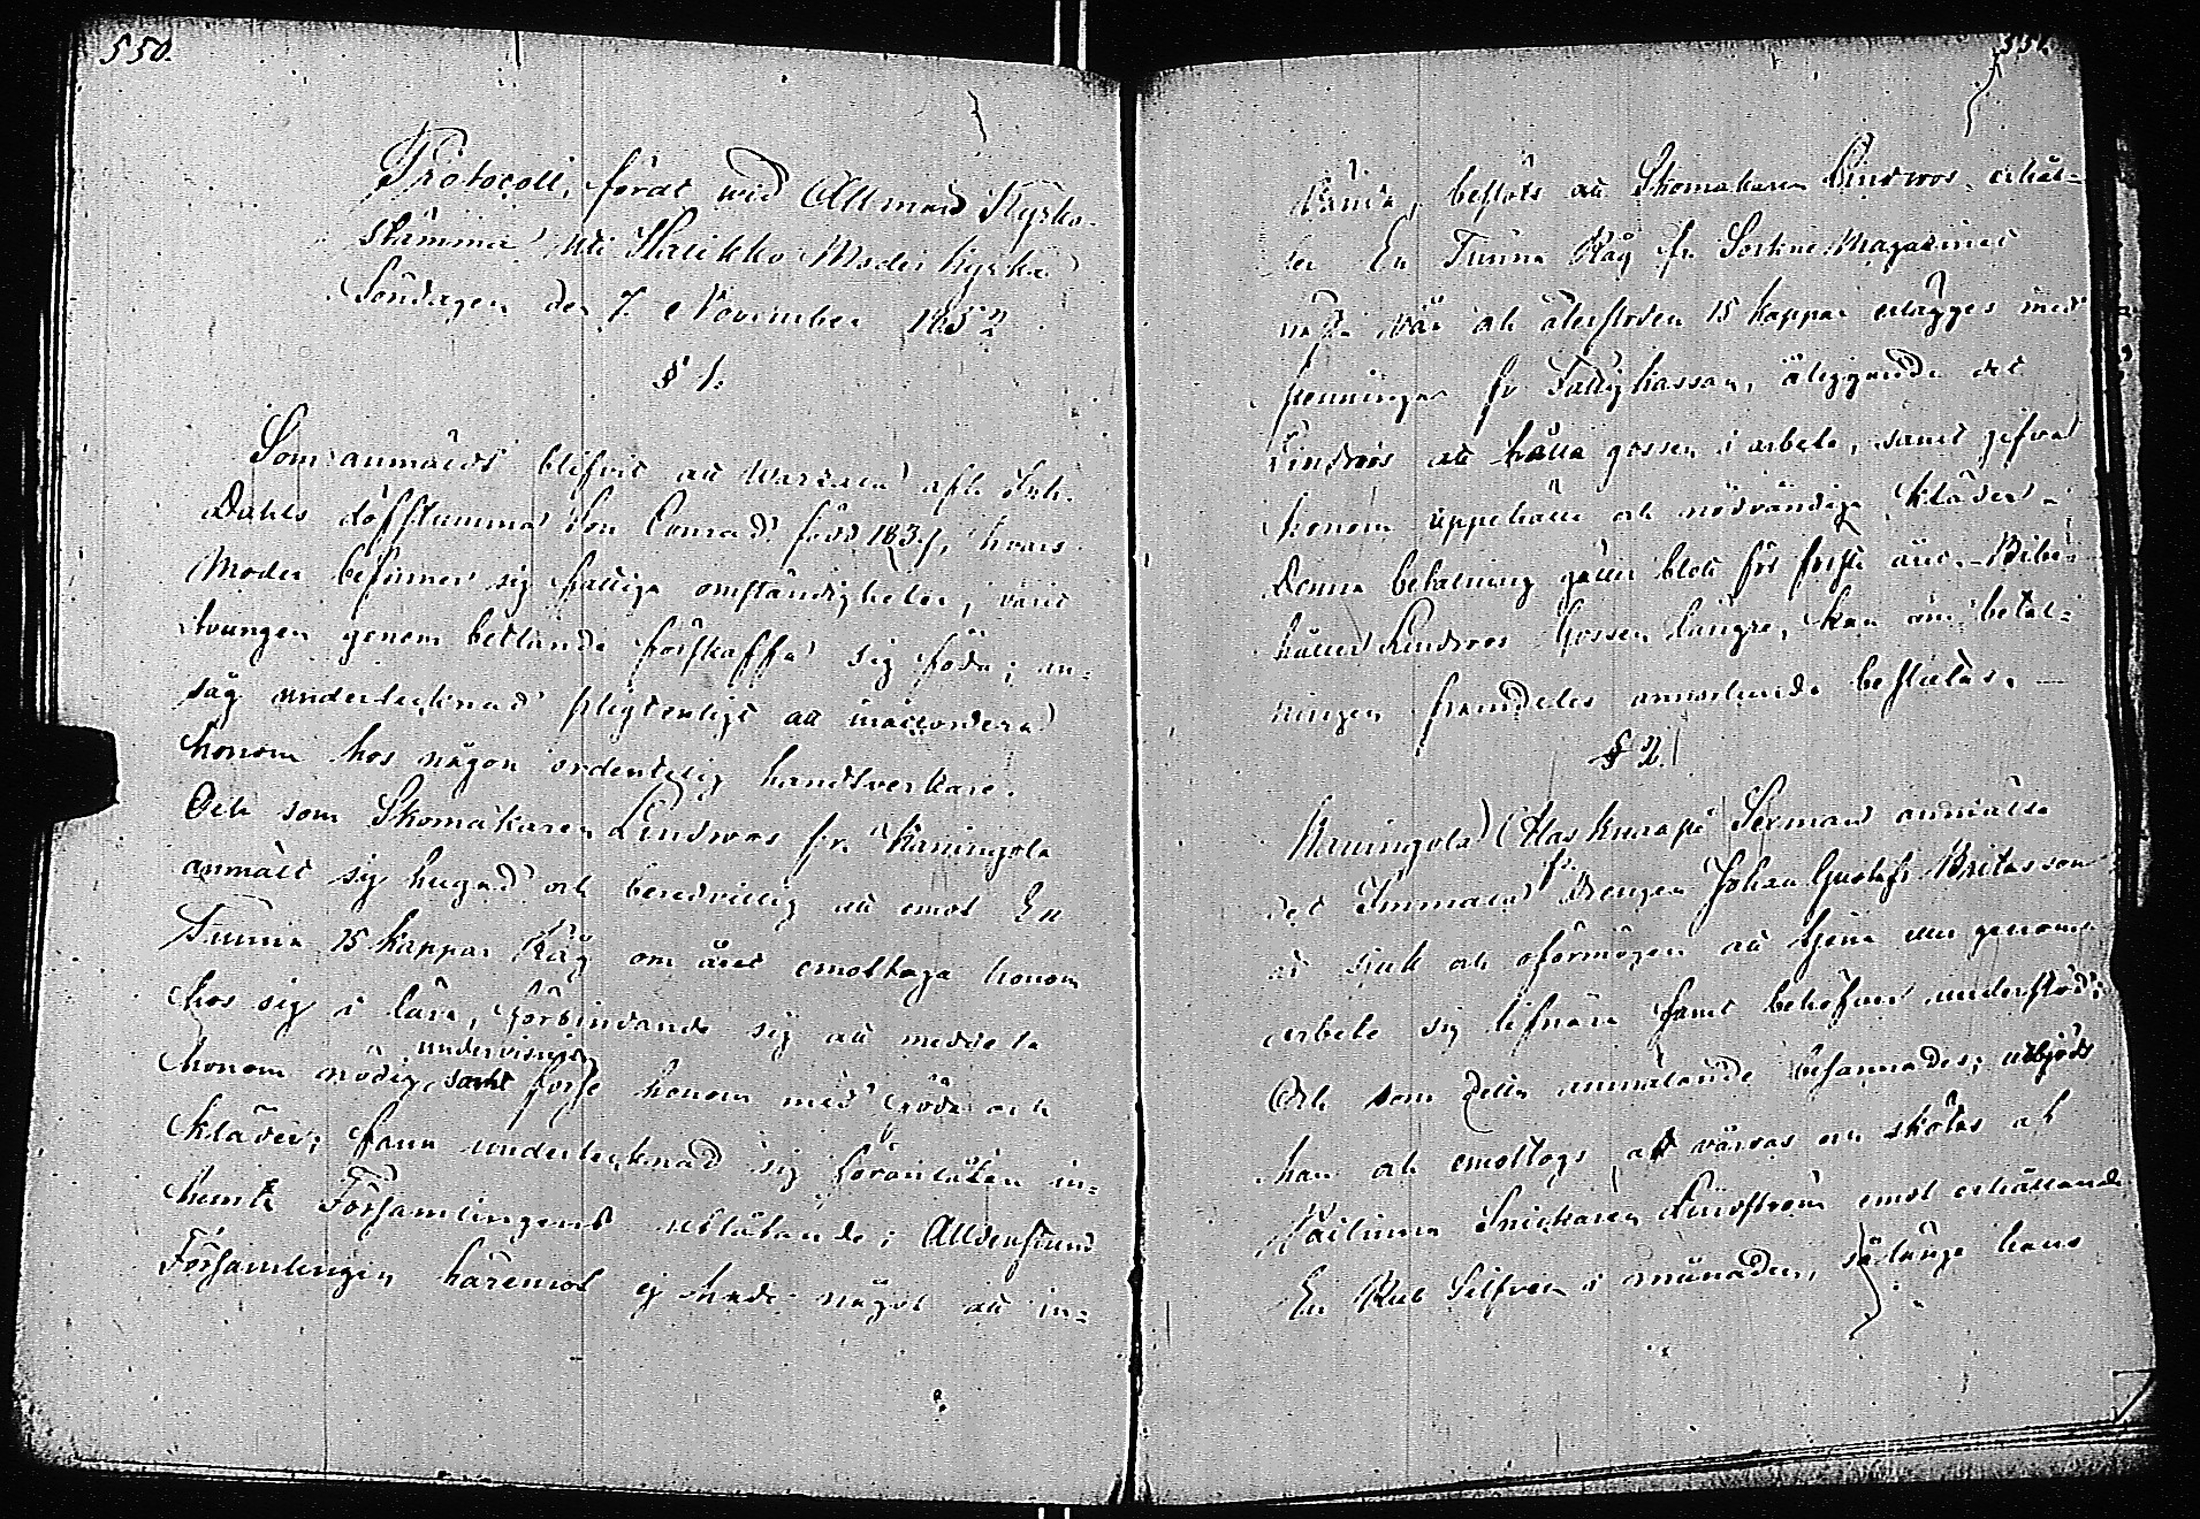 550.
Protocoll, fördt wid Allmän Kyrko-
stämma uti Halikko Moderkyrka
Söndagen den 7. November 1852
§ 1.
Som anmäldt blifvit att Wärdarn afl. Inh.
Dahls döfstumma Son Conrad född 1837, hvars
Moder befinner sig fattiga omständigheter, varit
tvungen genom betlande förskaffa sig föda; an-
såg undertecknad pligtenligt att inaccordera
honom hos någon ordentelig handtverkare.
Och som Skomakaren Lindroos fr. Kaningola
anmält sig hugad och beredvillig att emot En
Tunna 15 kappar Råg om året emottaga honom
hos sig i lära, förbindande sig att meddela
honom nödig undervisning samt förse honom med föda och
kläder; fann undertecknad sig föranlåten in-
hemta Församlingens utlåtande; Alldenstund
Församlingen häremot ej hade något att in-
551.
vända, beslöts att Skomakaren Lindroos erhål-
ler En Tunna Råg fr. Sockne Magazinet
nästa vår och återstoden 15 kappar erlägges med
penningar fr Fattigkassan, åliggande det
Lindroos att hålla gossen i arbete, samt gifva
honom uppehälle och nödvändiga kläder.
Denna betalning gäller blott för första året. Bibe-
håller Lindroos Gossen längre, kan om betal-
ningen framdeles annorlunda beslutas.
§ 2.
Kaningola Sexman anmälte
det Immala fr. Drengen Johan Gustaf Britasson
är sjuk och oförmögen att tjena eller genom
arbete sig lifnära samt behöfver understöd;
Och som detta anmälande besannades; utbjöds
han och emottogs att vårdas och skötas af
Snickaren Lindström emot erhållande
En Rub Silfver i månaden, så länge hans